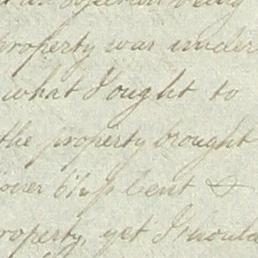 being
property was under
what I ought to
the property brought
over 6½ p Cent &
roperty, yet I should